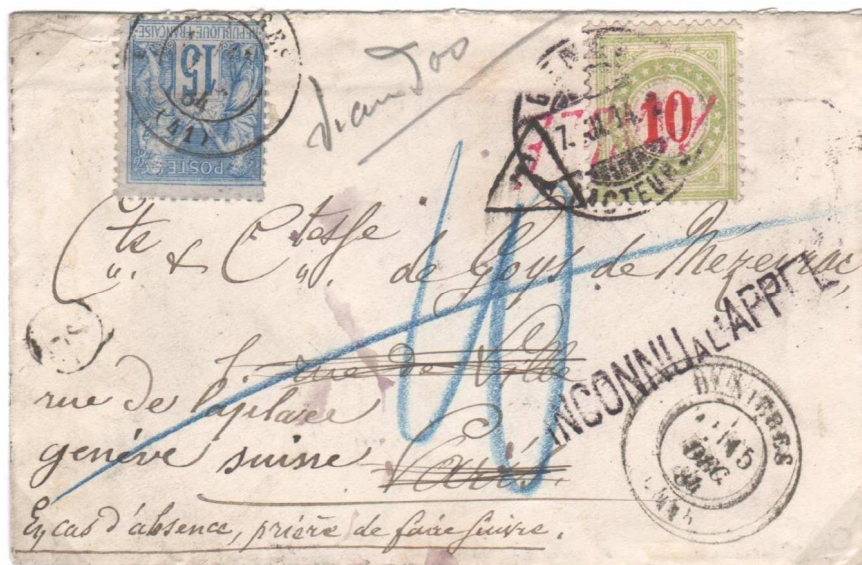 RÉPUBLIQUE FRANÇAISE
15
POSTES
84
(41)
10
FACTEURS
T
Cte & Ctesse de Goys de Mézeyrac
5 rue de Ville
rue de laplace
genève suisse Paris
En cas d'absence, prière de faire suivre.
10
INCONNU A L'APPEL
5
DEC
84